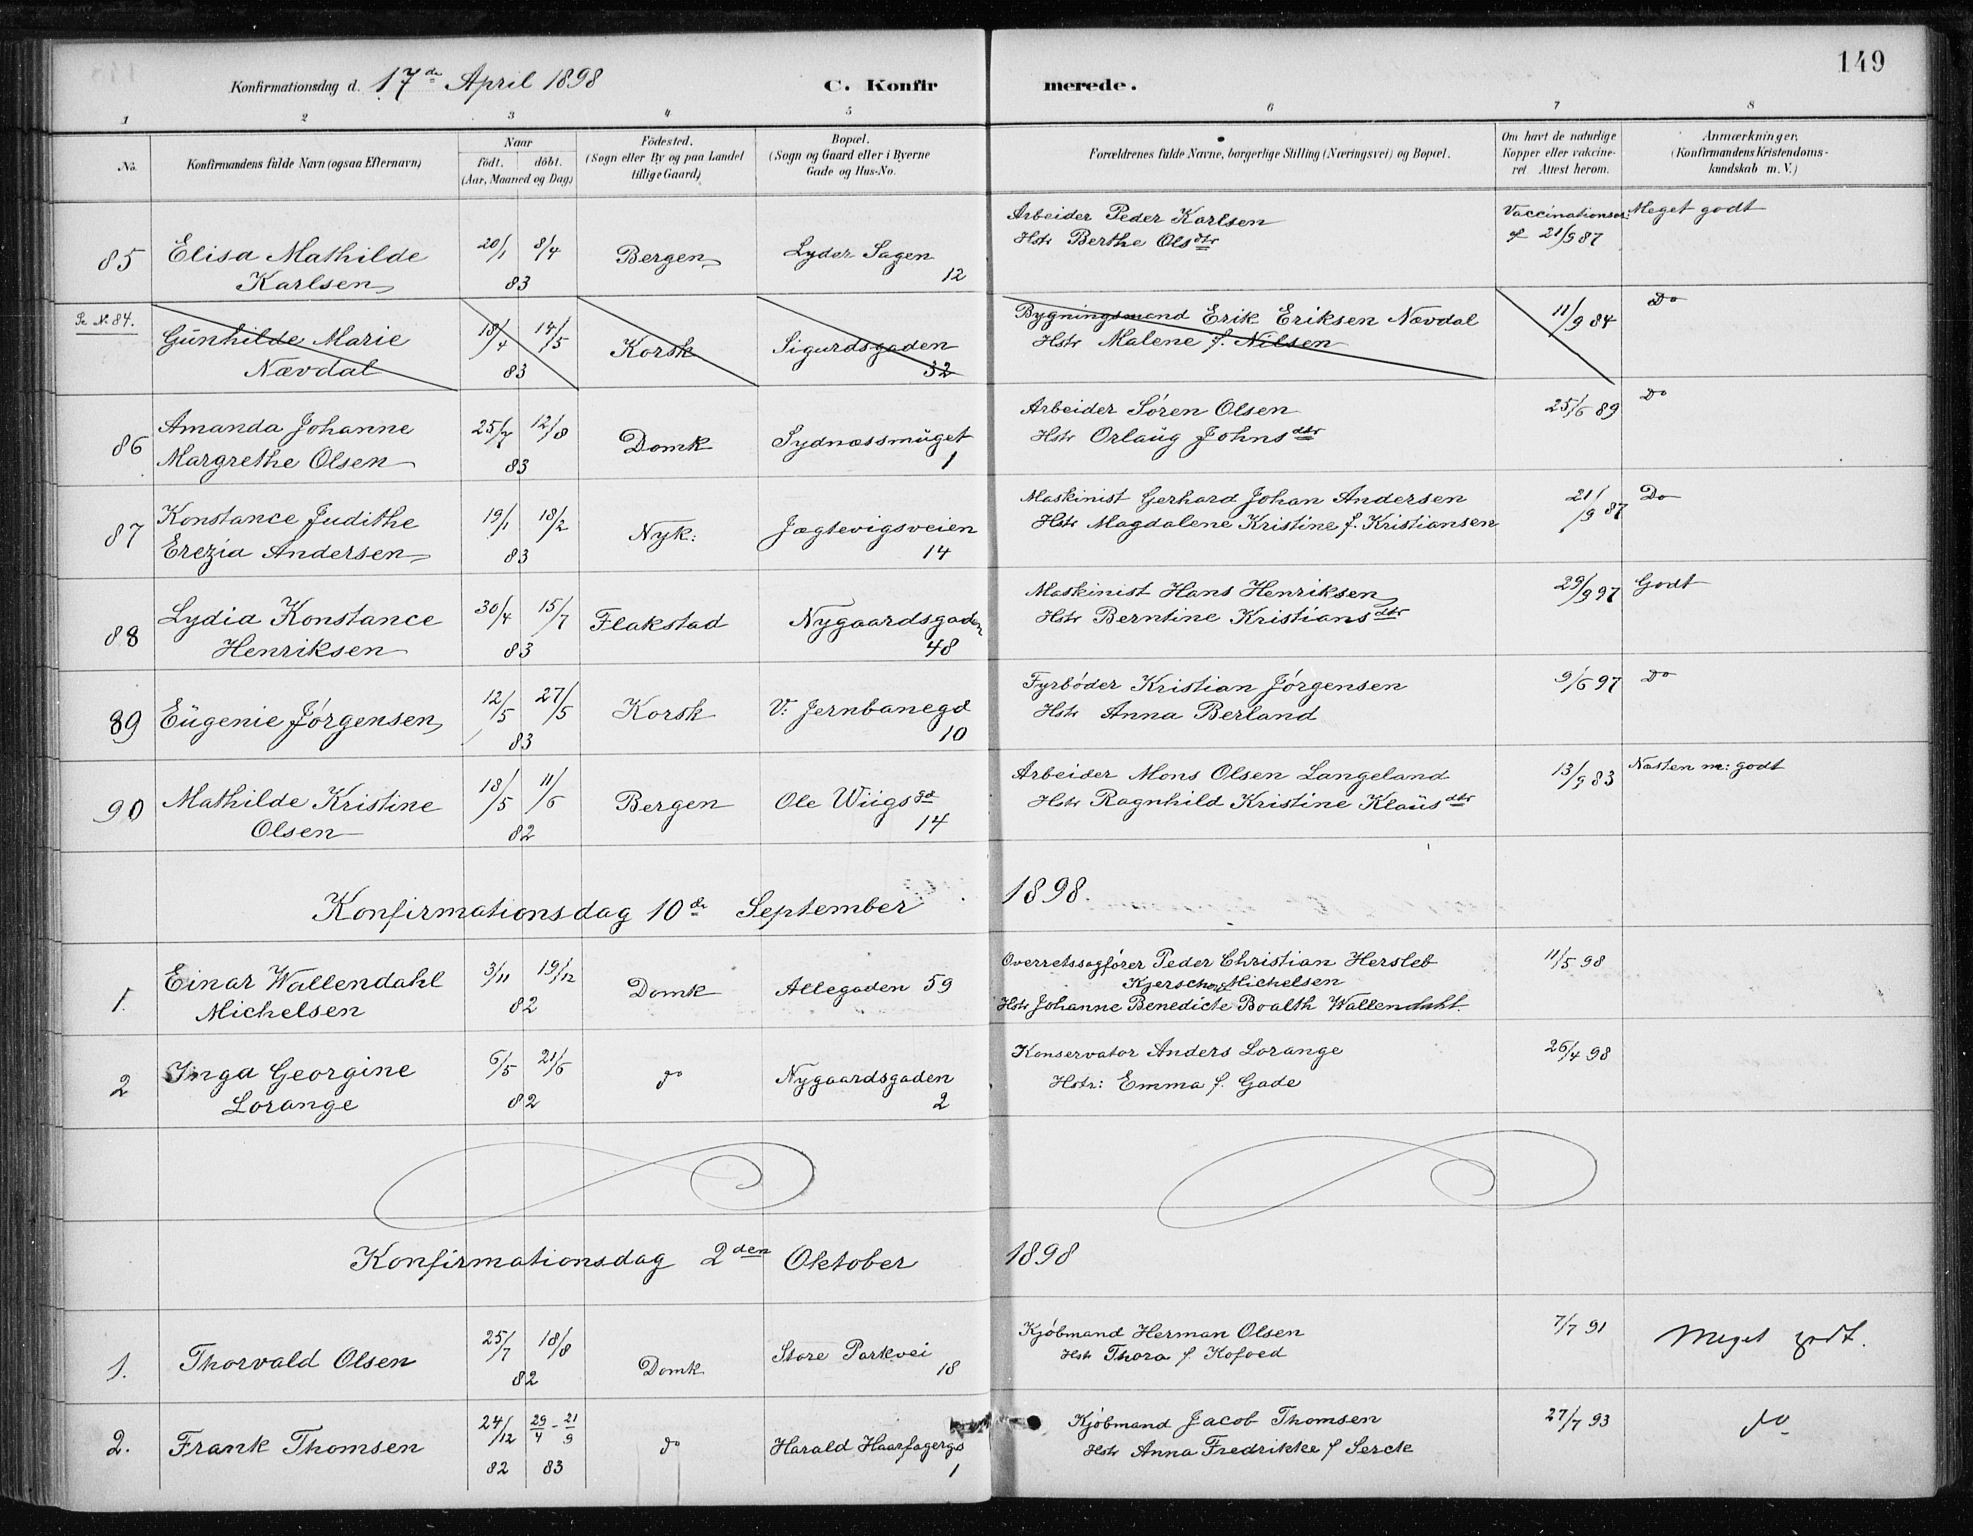 149
Konfirmationsdag d. 17de April 1898
C. Konfirmerede.
1 2 3 4 5 6 7 8
No. Konfirmandens fulde Navn (ogsaa Efternavn)
Naar
födt. döbt.
(Aar, Maaned og Dag)
Födested.
(Sogn eller By og paa Landet
tillige Gaard)
Bopæl.
(Sogn og Gaard eller i Byerne
Gade og Hus-No.
Forældrenes fulde Navne, borgerlige Stilling (Næringsvei) og Bopæl.
Om havt de naturlige
Kopper eller vakcine-
ret Attest herom.
Anmærkninger.
(Konfirmandens Kristendoms-
kundskab m. V.)
85 Elisa Mathilde
Karlsen
20/1 8/4
83
Bergen
Lyder Sagen
12
Arbeider Peder Karlsen
Hstr Berthe Olsdtr
Vaccinationsat:
af 21/9 87
Meget godt
Se No 84.
Gunhilde Marie
Nævdal
18/4 14/5
83
Korsk
Sigurdsgaden
32
Bygningsmand Erik Eriksen Nævdal
Hstr Malene f. Nilsen
11/9 84
Do
86 Amanda Johanne
Margrethe Olsen
25/7 12/8
83
Domk
Sydnæssmuget
1
Arbeider Sören Olsen
Hstr Orlaug Johnsdtr
25/6 89
Do
87 Konstance Judithe
Erezia Andersen
19/1 18/2
83
Nyk:
Jægtevigsveien
14
Maskinist Gerhard Johan Andersen
Hstr Magdalene Kristine f. Kristiansen
21/9 87
Do
88 Lydia Konstance
Henriksen
30/4 15/7
83
Flakstad
Nygaardsgaden
48
Maskinist Hans Henriksen
Hstr Berntine Kristiansdtr
29/9 97
Godt
89 Eugenie Jörgensen
12/5 27/5
83
Korsk
V: Jernbanegd
10
Fyrböder Kristian Jörgensen
Hstr Anna Berland
9/6 97
Do
90 Mathilde Kristine
Olsen
18/5 11/6
82
Bergen
Ole Wiigsgd
14
Arbeider Mons Olsen Langeland
Hstr Ragnhild Kristine Klausdtr
13/9 83
Næsten m: godt
Konfirmationsdag 10de September 1898.
1. Einar Wallendahl
Michelsen
3/11 19/12
82
Domk
Allegaden 59
Overretssagförer Peder Christian Hersleb
Kjerschow Michelsen
Hstr Johanne Benedicte Boalth Wallendahl.
11/5 98
2 Inga Georgine
Lorange
6/5 21/6
82
do
Nygaardsgaden
2
Konservator Anders Lorange
Hstr: Emma f. Gade
26/4 98
Konfirmationsdag 2den Oktober 1898
1. Thorvald Olsen
25/7 18/8
82
Domk
Store Parkvei
18
Kjöbmand Herman Olsen
Hstr Thora f Kofoed
7/7 91
Meget godt.
2. Frank Thomsen
24/12 29/4 - 21/9
82 83
do
Harald Haarfagergs
1
Kjöbmand Jacob Thomsen
Hstr Anna Fredrikke f Serck
27/7 93
do